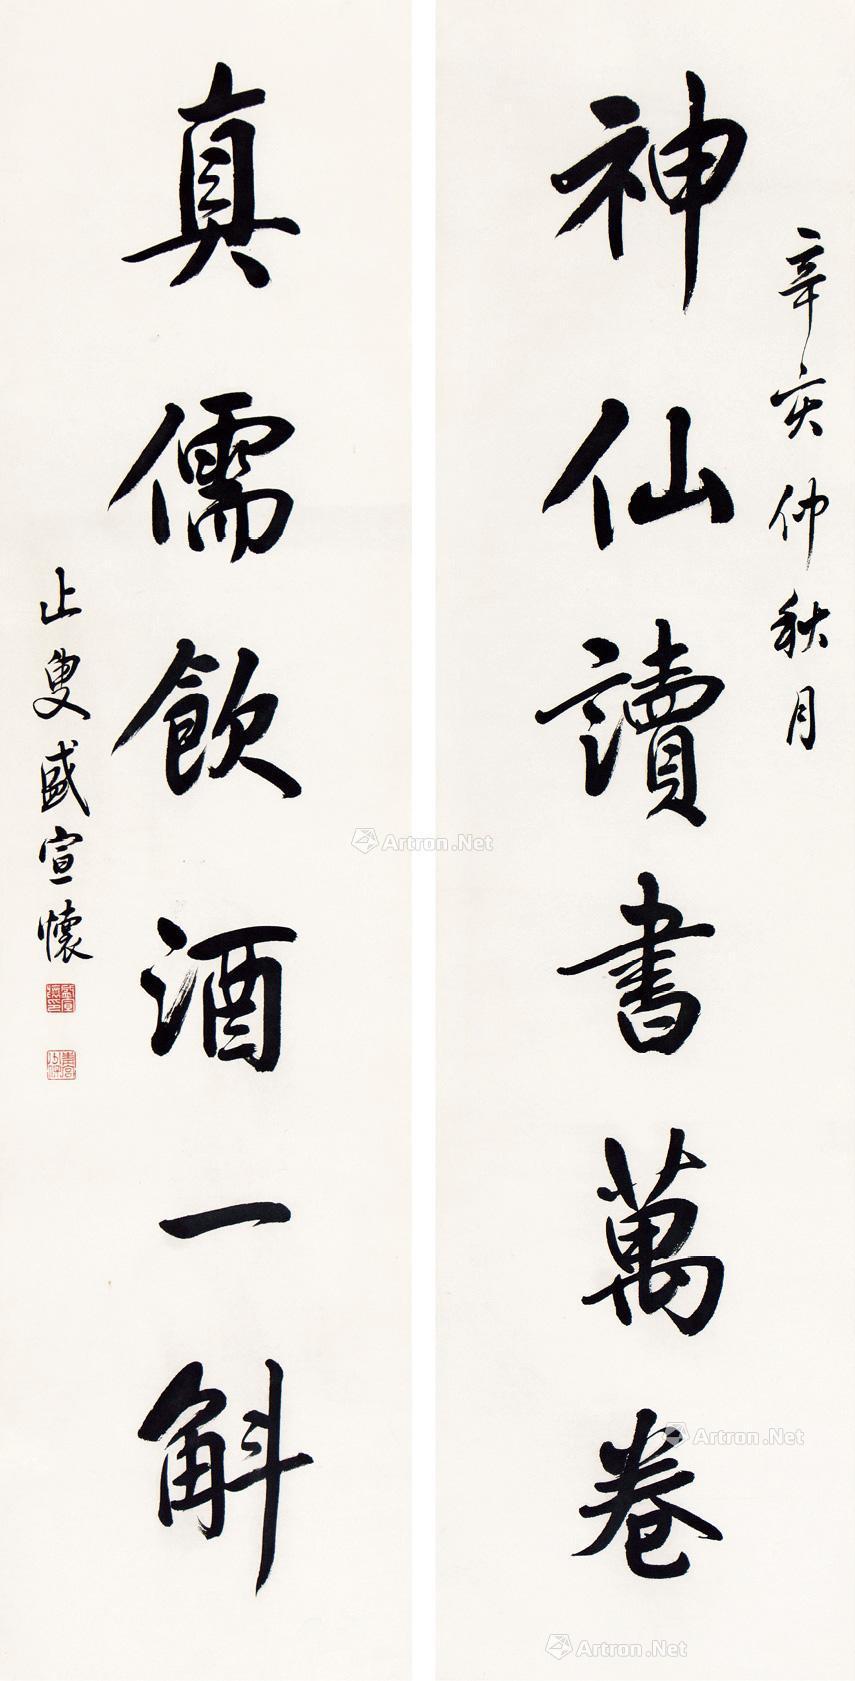 辛亥仲秋月
神仙讀書萬卷
真儒飲酒一斛
止叟盛宣懷
Artron.Net
Artron.Net
Artron.Net